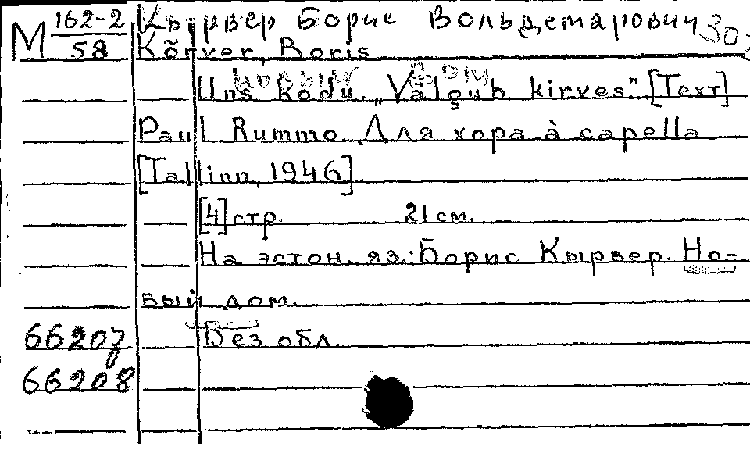 М 162-2/58 Кырвер Борис Вольдемарович
Kõrver, Boris
Uus kodu. „Valgub kirves". [Text]
Paul Rummo. Для хора à capella
[Tallinn, 1946]
[4] стр. 21 см.
На эстон. яз.: Борис Кырвер. Но-
вый дом.
66207 Без обл.
66208